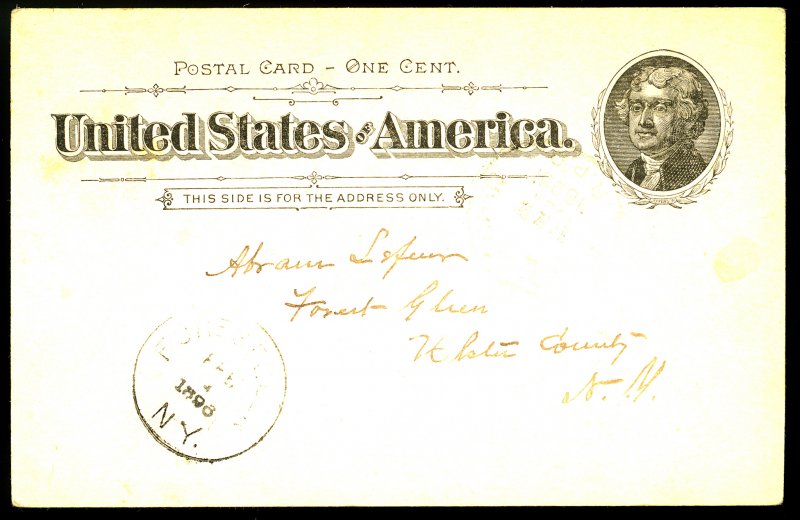 POSTAL CARD - ONE CENT.
United States OF America.
THIS SIDE IS FOR THE ADDRESS ONLY.
Abram Lefever
Forest Glen
Ulster County
N. Y.
FEB
4
1898
N.Y.